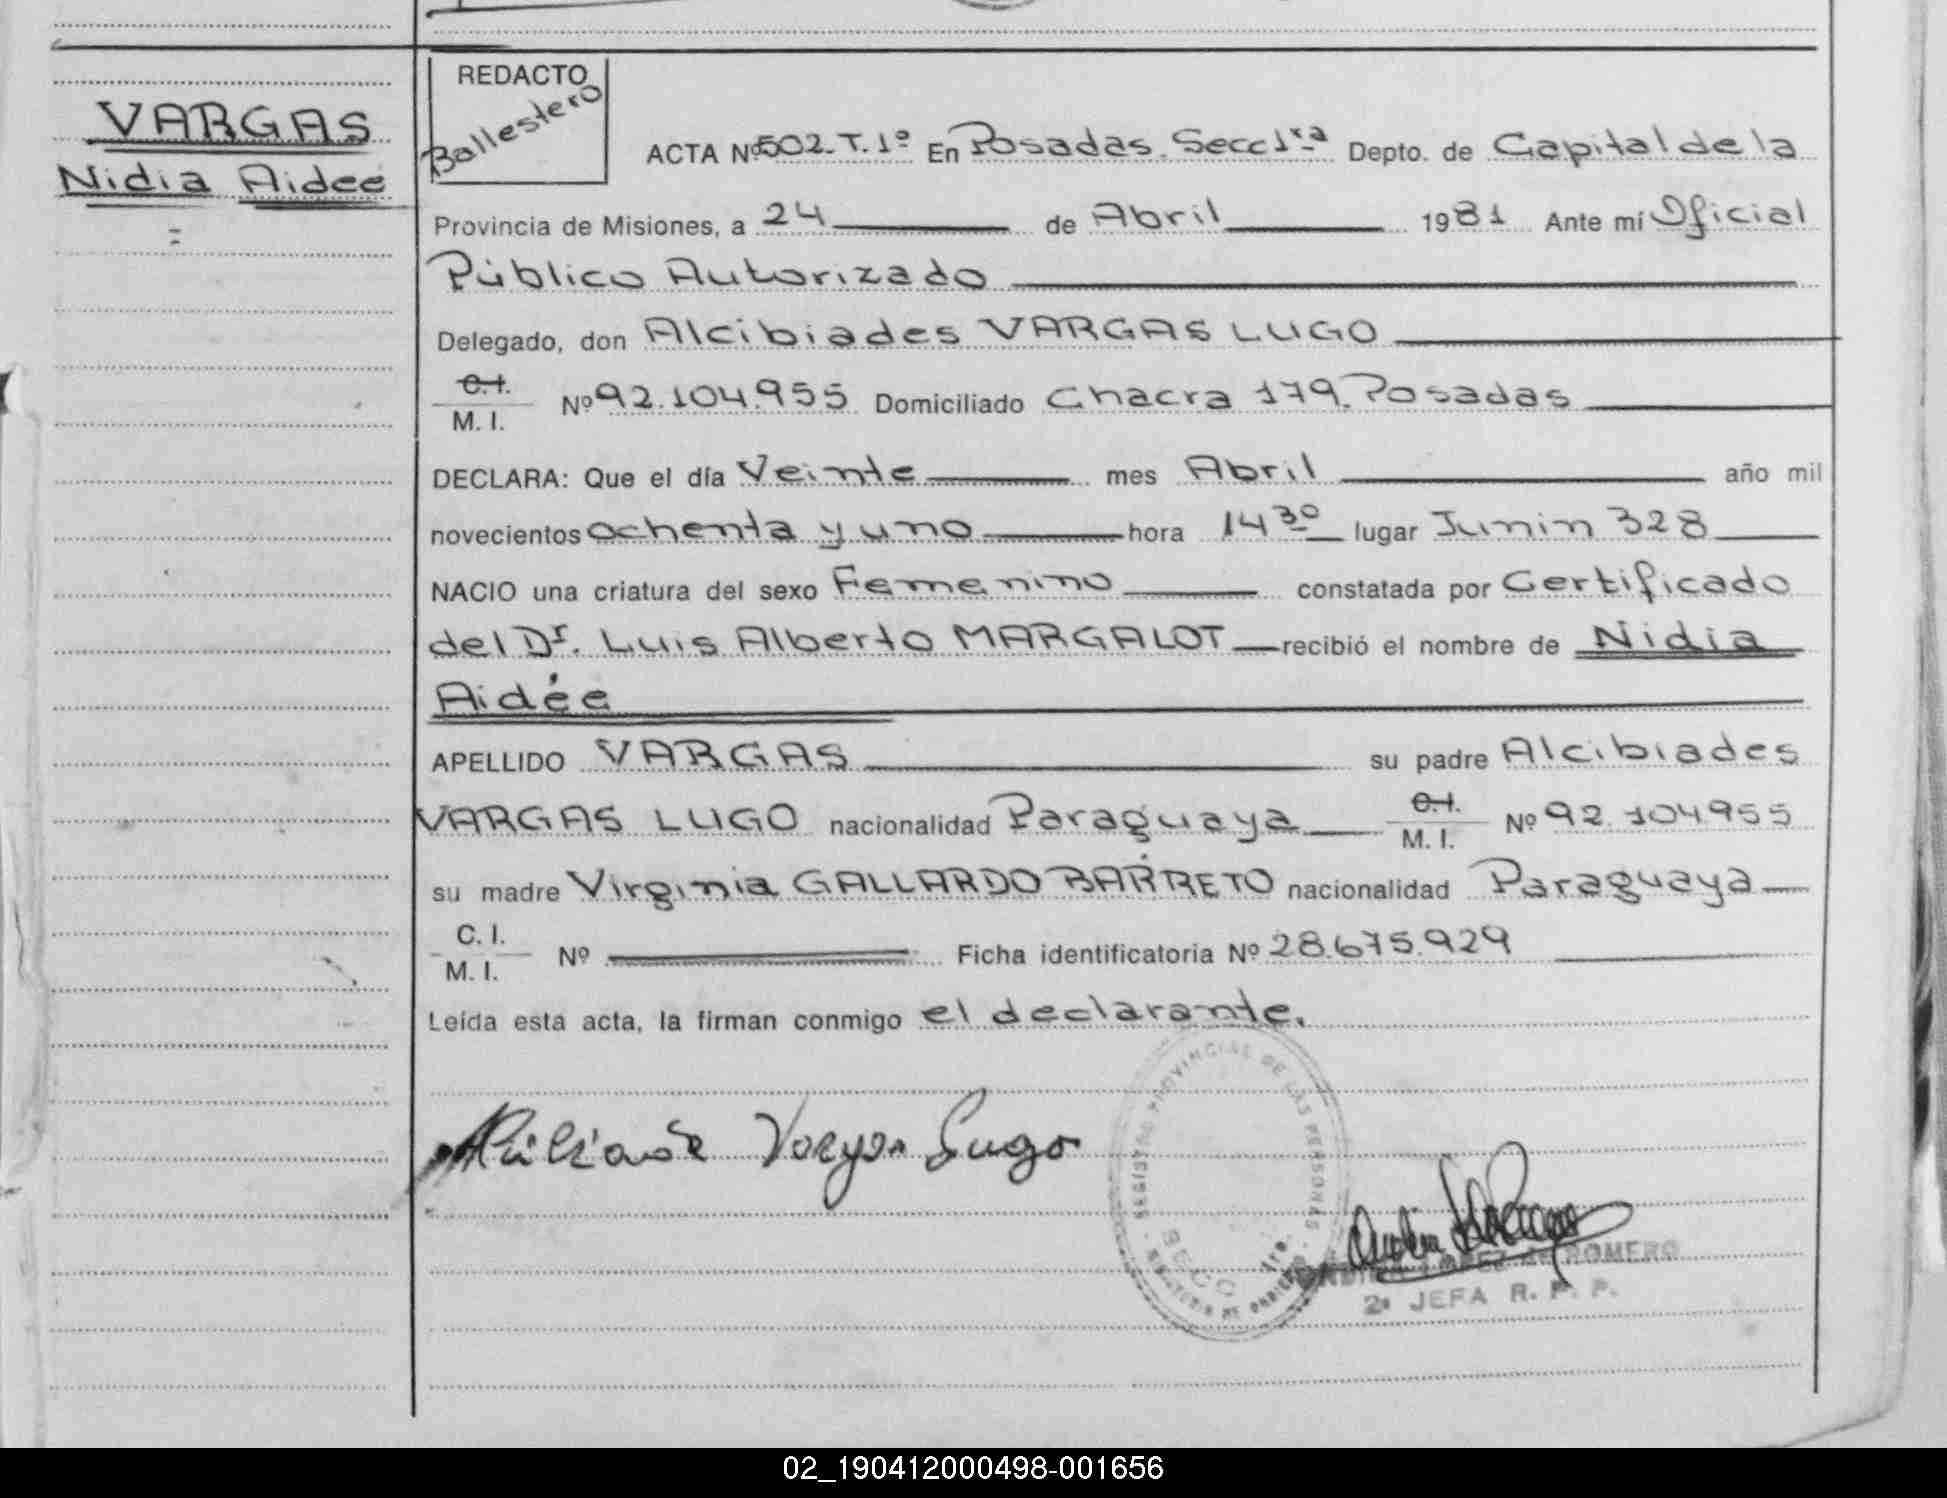 VARGAS
Nidia Aidee
REDACTO
Ballestero
ACTA Nº 502. T. 1º En Posadas. Secc 1ra Depto. de Capital de la
Provincia de Misiones, a 24 de Abril 1981 Ante mí Oficial
Público Autorizado
Delegado, don Alcibiades VARGAS LUGO
C.I.
M. I. Nº 92.104.955 Domiciliado Chacra 179. Posadas
DECLARA: Que el día Veinte mes Abril año mil
novecientos ochenta y uno hora 14 30 lugar Junin 328
NACIO una criatura del sexo Femenino constatada por Certificado
del Dr. Luis Alberto MARGALOT recibió el nombre de Nidia
Aidée
APELLIDO VARGAS su padre Alcibiades
VARGAS LUGO nacionalidad Paraguaya C.I. M. I. Nº 92.104955
su madre Virginia GALLARDO BARRETO nacionalidad Paraguaya
C. I.
M. I. Nº Ficha identificatoria Nº 28.675.929
Leída esta acta, la firman conmigo el declarante.
Vargas Lugo
REGISTRO PROVINCIAL DE LAS PERSONAS
SECC 1ra.
LOPEZ de ROMERO
2ª JEFA R. P. P.
02_190412000498-001656